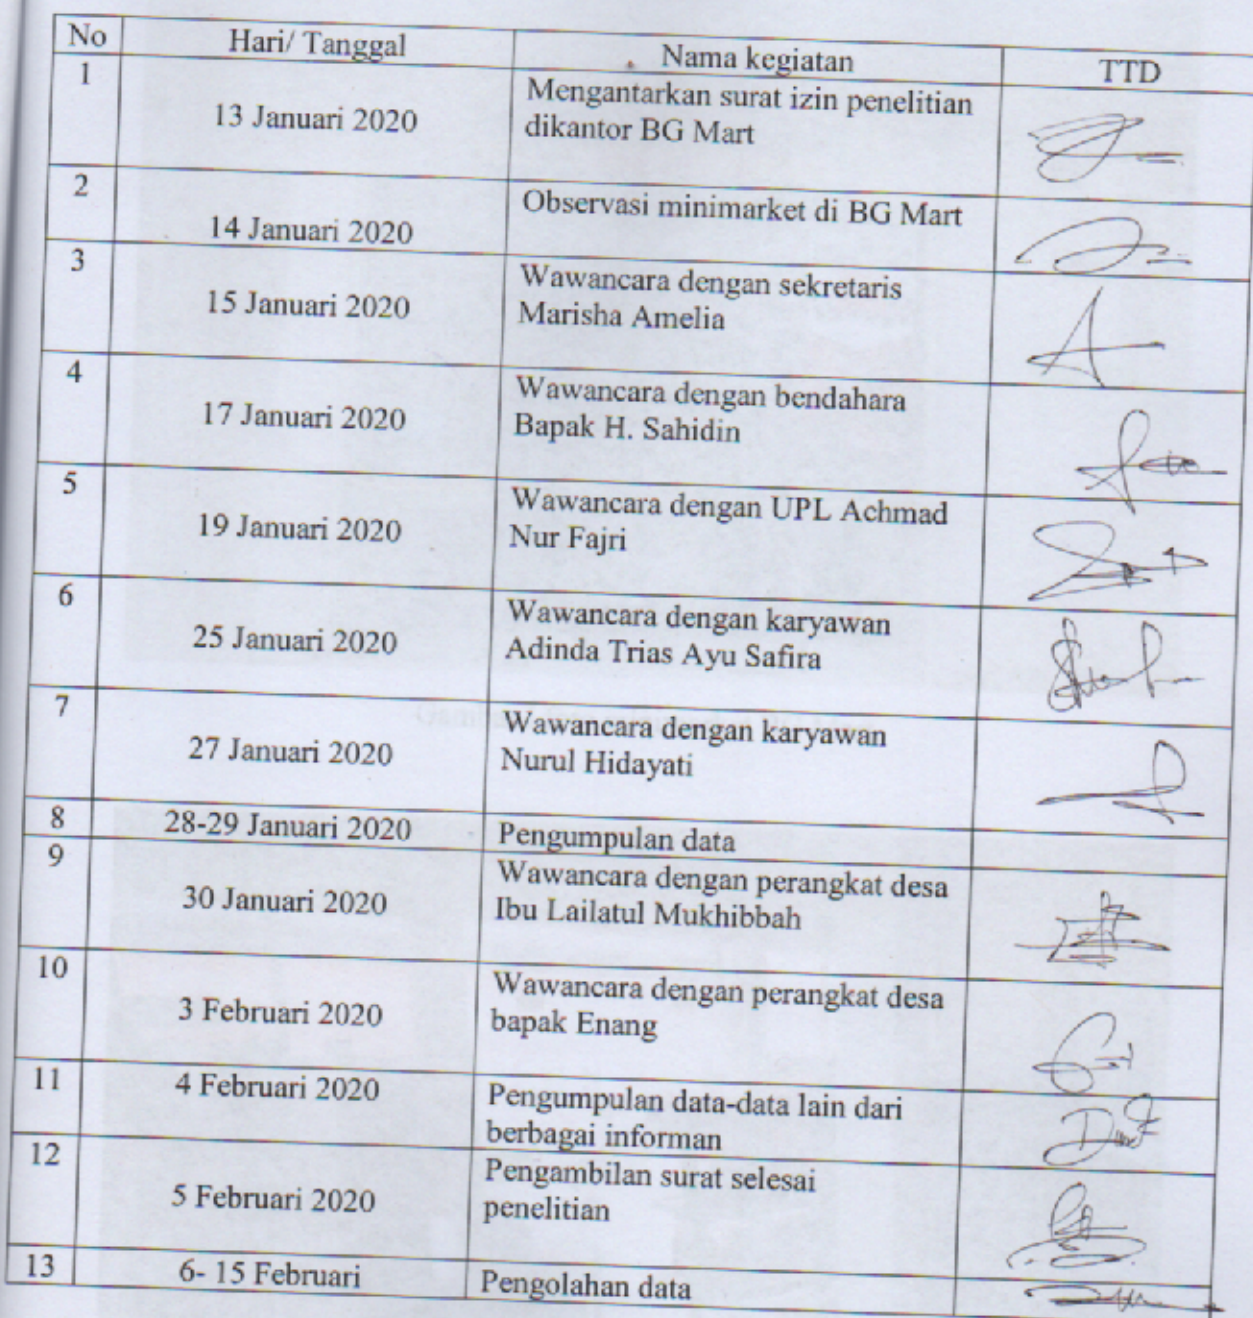 No Hari/ Tanggal Nama kegiatan TTD
1 13 Januari 2020 Mengantarkan surat izin penelitian
dikantor BG Mart
2 14 Januari 2020 Observasi minimarket di BG Mart
3 15 Januari 2020 Wawancara dengan sekretaris
Marisha Amelia
4 17 Januari 2020 Wawancara dengan bendahara
Bapak H. Sahidin
5 19 Januari 2020 Wawancara dengan UPL Achmad
Nur Fajri
6 25 Januari 2020 Wawancara dengan karyawan
Adinda Trias Ayu Safira
7 27 Januari 2020 Wawancara dengan karyawan
Nurul Hidayati
8 28-29 Januari 2020 Pengumpulan data
9 30 Januari 2020 Wawancara dengan perangkat desa
Ibu Lailatul Mukhibbah
10 3 Februari 2020 Wawancara dengan perangkat desa
bapak Enang
11 4 Februari 2020 Pengumpulan data-data lain dari
berbagai informan
12 5 Februari 2020 Pengambilan surat selesai
penelitian
13 6- 15 Februari Pengolahan data